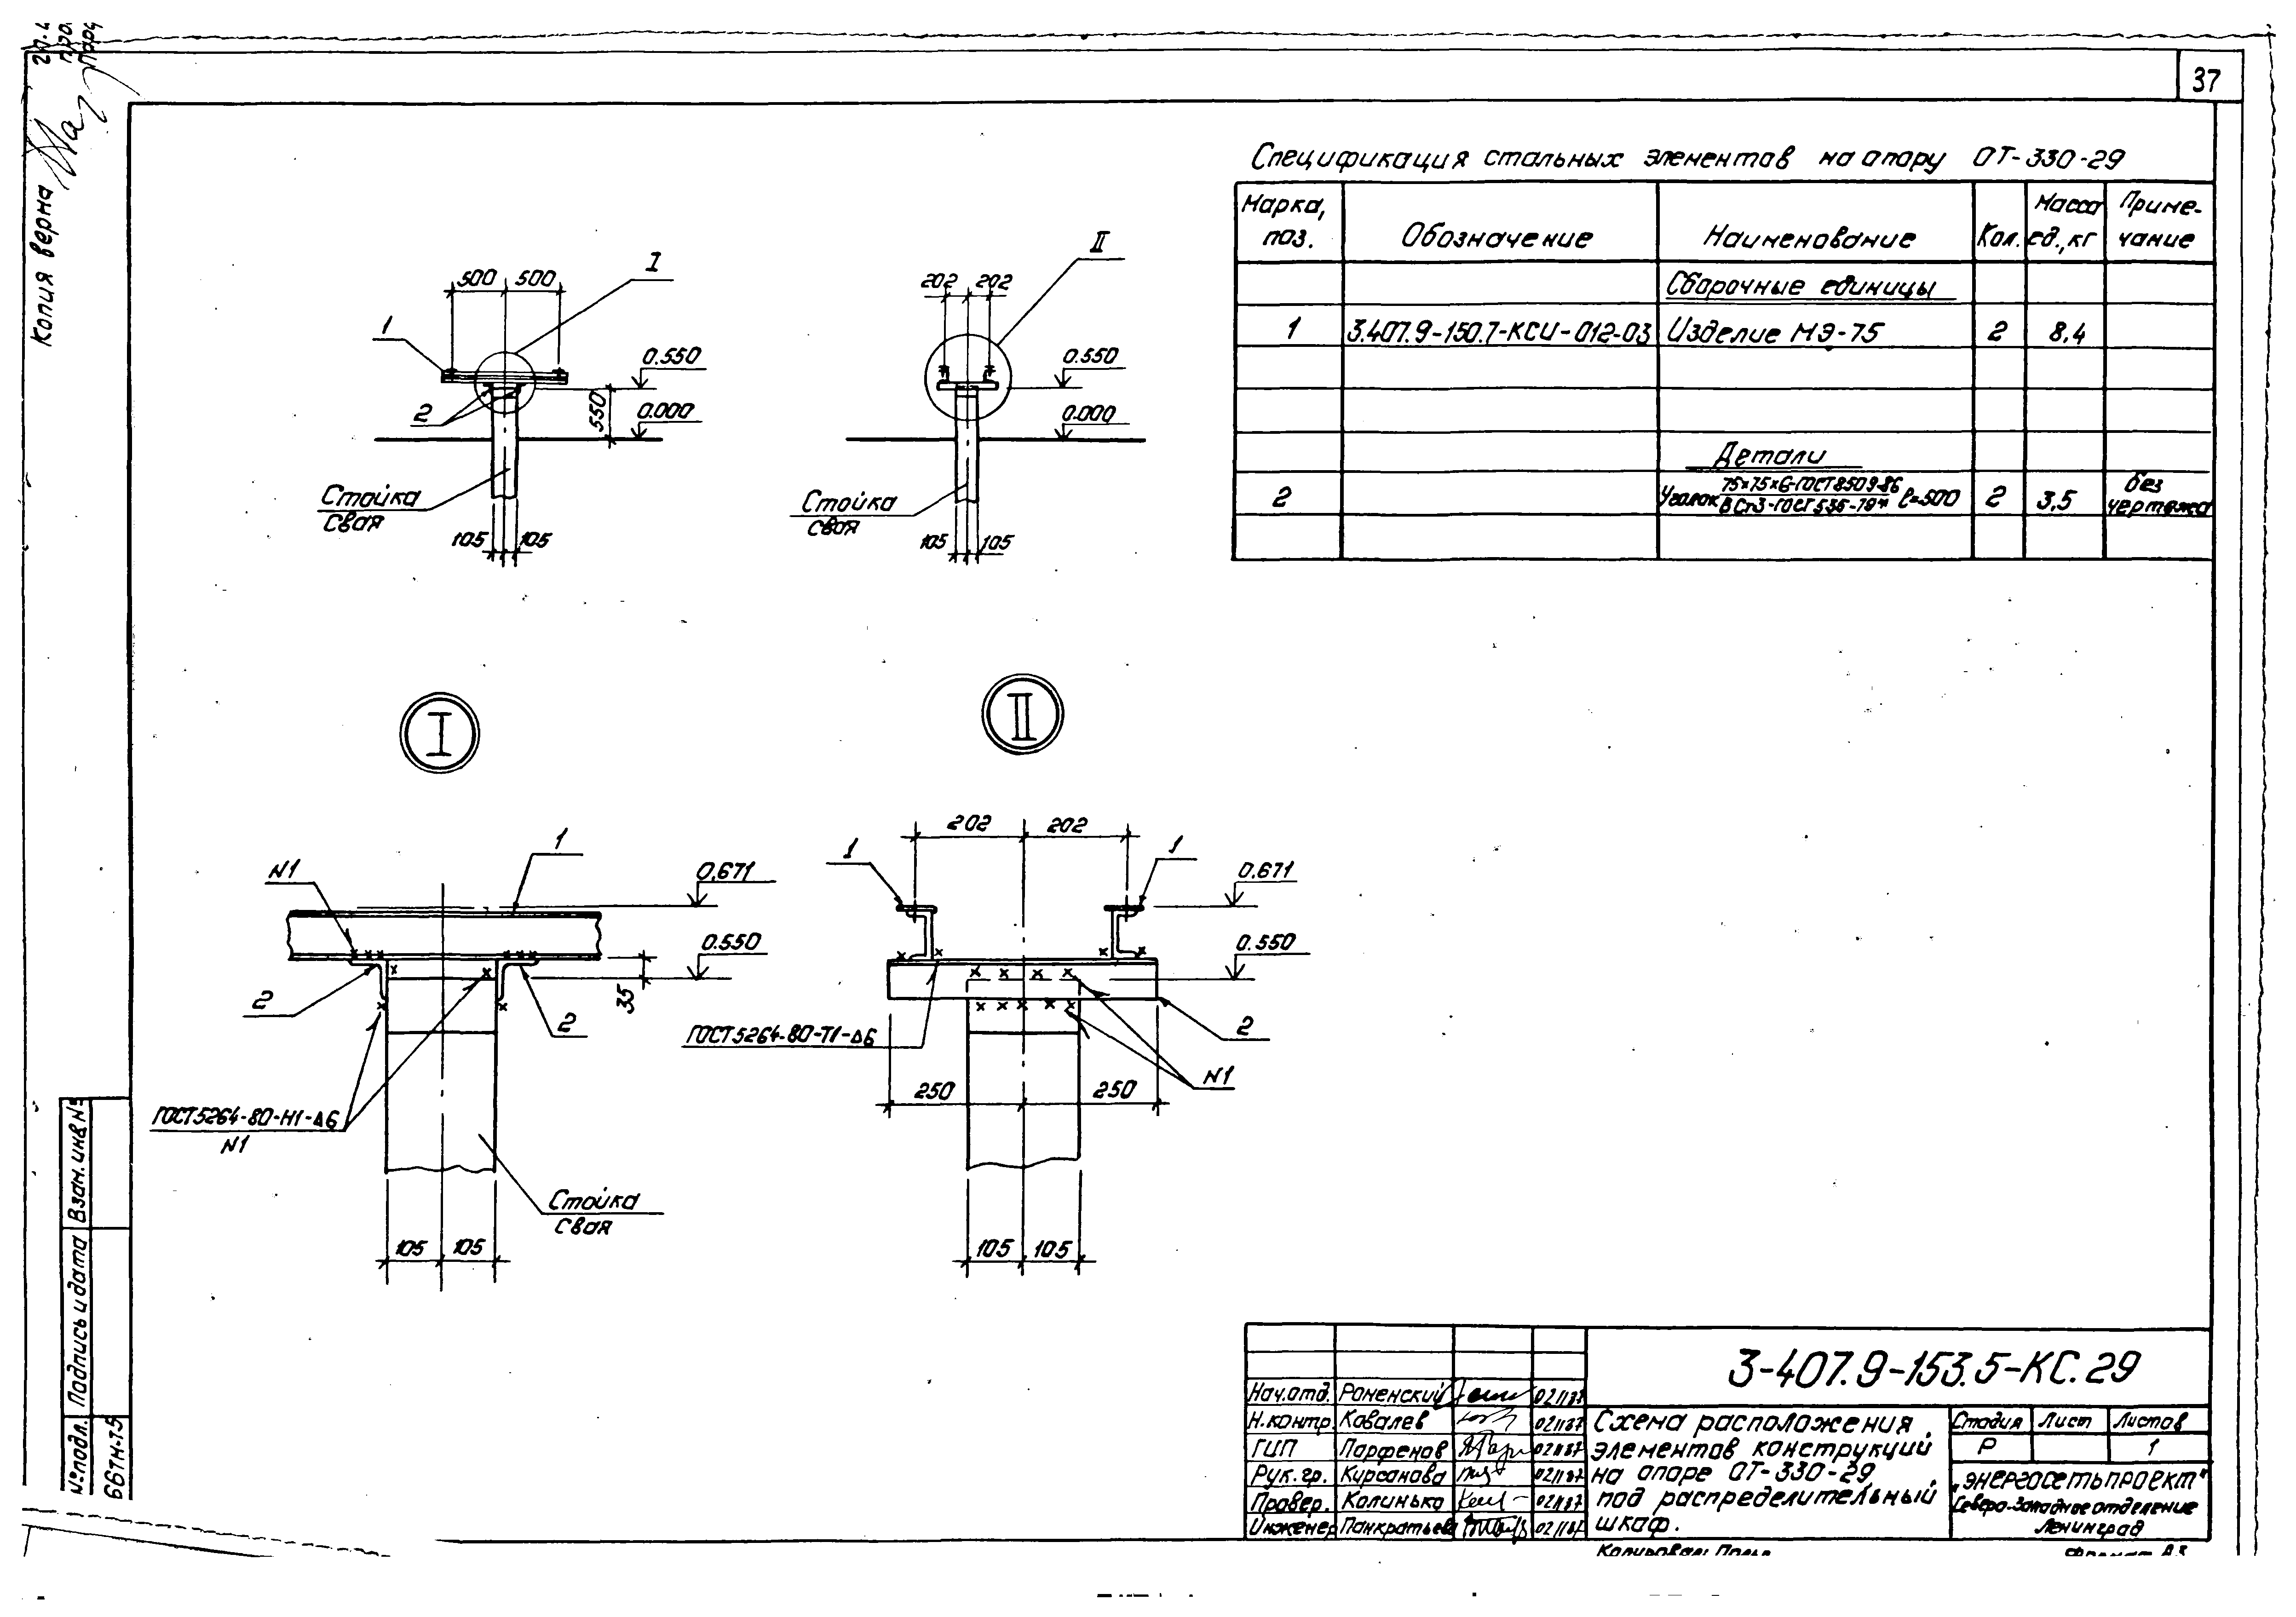 37
Копия верна
Спецификация стальных элементов на опору ОТ-330-29
Марка, поз.
Обозначение
Наименование
Кол.
Масса ед., кг
Приме-чание
Сборочные единицы
1 3.407.9-150.7-КСИ-012-03 Изделие МЭ-75 2 8,4
Детали
2 Уголок 75×75×6-ГОСТ 8509-86 / ВСт3-ГОСТ 535-79* ℓ=500 2 3,5 без чертежа
500 500
I
1
2
0.550
0.000
550
Стойка
Свая
105 105
202 202
II
0.550
0.000
Стойка
Свая
105 105
I
N1
1
0,671
0.550
35
2
2
ГОСТ 5264-80-Н1-Δ6
N1
Стойка
Свая
105 105
II
202 202
1
1
0,671
0.550
2
ГОСТ 5264-80-Т1-Δ6
N1
250 250
105 105
Взам. инв №
Подпись и дата
№ подл.
3-407.9-153.5-КС.29
Нач.отд. Роменский
Н.контр. Ковалев
ГИП Парфенов
Рук. гр. Курсанова
Провер. Калинько
Инженер Панкратьева
Схема расположения
элементов конструкций
на опоре ОТ-330-29
под распределительный
шкаф.
Стадия Лист Листов
Р 1
„Энергосетьпроект"
Северо-Западное отделение
Ленинград